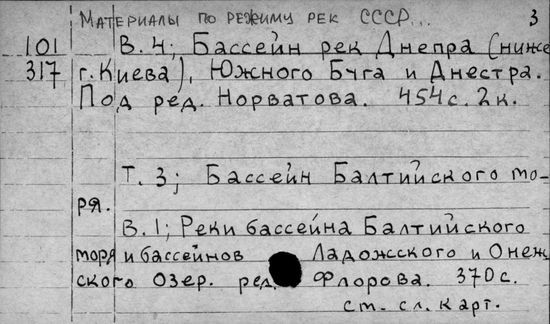 Материалы по режиму рек СССР... 3
101 В. 4; Бассейн рек Днепра (ниже
317 г. Киева), Южного Буга и Днестра.
Под ред. Норватова. 454 с. 2 к.
Т. 3; Бассейн Балтийского мо-
ря.
В. 1; Реки бассейна Балтийского
моря и бассейнов Ладожского и Онеж
ского озер. ред. Флорова. 370 с.
см. сл. карт.